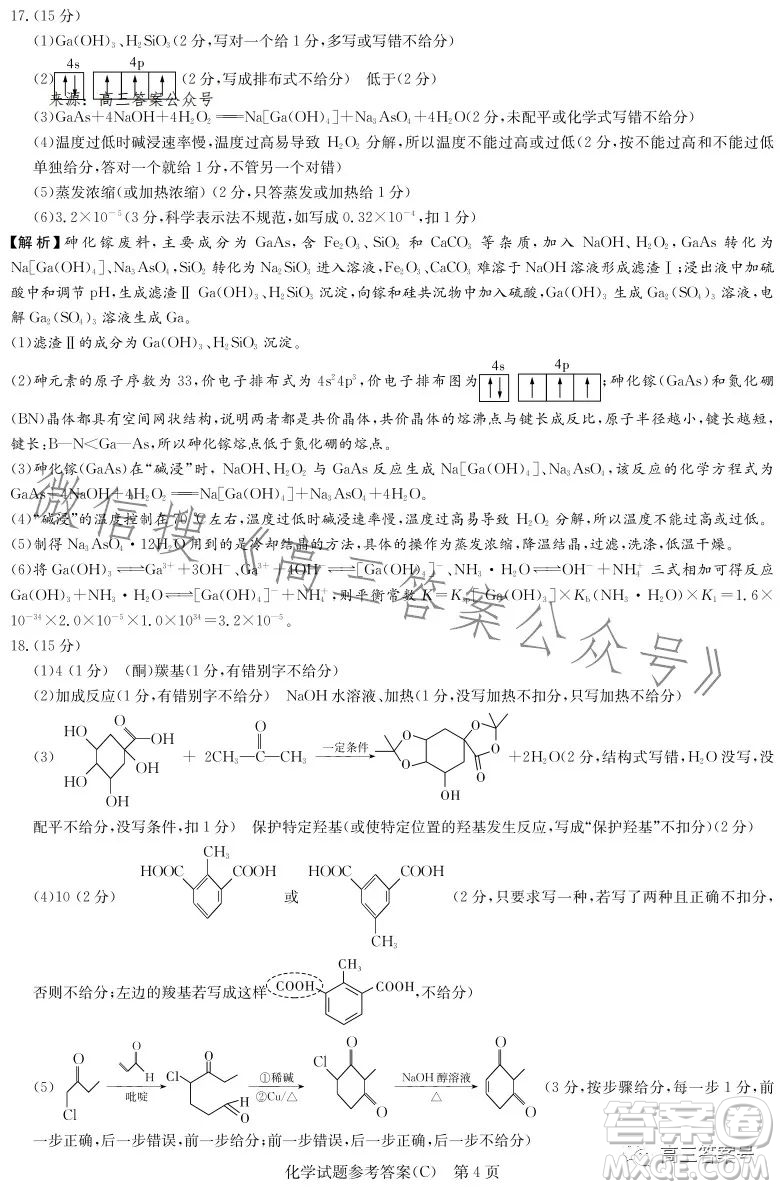 17.(15分)
(1)Ga(OH)₃、H₂SiO₃(2分,写对一个给1分,多写或写错不给分)
(2) 4s ↑↓ 4p ↑ ↑ ↑ (2分,写成排布式不给分) 低于(2分)
来源:高三答案公众号
(3)GaAs+4NaOH+4H₂O₂══Na[Ga(OH)₄]+Na₃AsO₄+4H₂O(2分,未配平或化学式写错不给分)
(4)温度过低时碱浸速率慢,温度过高易导致 H₂O₂ 分解,所以温度不能过高或过低(2分,按不能过高和不能过低
单独给分,答对一个就给1分,不管另一个对错)
(5)蒸发浓缩(或加热浓缩)(2分,只答蒸发或加热给1分)
(6)3.2×10⁻⁵(3分,科学表示法不规范,如写成0.32×10⁻⁴,扣1分)
【解析】砷化镓废料,主要成分为 GaAs,含 Fe₂O₃、SiO₂ 和 CaCO₃ 等杂质,加入 NaOH、H₂O₂,GaAs 转化为
Na[Ga(OH)₄]、Na₃AsO₄,SiO₂ 转化为 Na₂SiO₃ 进入溶液,Fe₂O₃、CaCO₃ 难溶于 NaOH 溶液形成滤渣Ⅰ;浸出液中加硫
酸中和调节 pH,生成滤渣Ⅱ Ga(OH)₃、H₂SiO₃ 沉淀,向镓和硅共沉物中加入硫酸,Ga(OH)₃ 生成 Ga₂(SO₄)₃ 溶液,电
解 Ga₂(SO₄)₃ 溶液生成 Ga。
(1)滤渣Ⅱ的成分为 Ga(OH)₃、H₂SiO₃ 沉淀。
(2)砷元素的原子序数为 33,价电子排布式为 4s²4p³,价电子排布图为 4s ↑↓ 4p ↑ ↑ ↑ ;砷化镓(GaAs)和氮化硼
(BN)晶体都具有空间网状结构,说明两者都是共价晶体,共价晶体的熔沸点与键长成反比,原子半径越小,键长越短,
键长:B—N<Ga—As,所以砷化镓熔点低于氮化硼的熔点。
(3)砷化镓(GaAs)在“碱浸”时,NaOH、H₂O₂ 与 GaAs 反应生成 Na[Ga(OH)₄]、Na₃AsO₄,该反应的化学方程式为
GaAs+4NaOH+4H₂O₂══Na[Ga(OH)₄]+Na₃AsO₄+4H₂O。
(4)“碱浸”的温度控制在 70 ℃左右,温度过低时碱浸速率慢,温度过高易导致 H₂O₂ 分解,所以温度不能过高或过低。
(5)制得 Na₃AsO₄·12H₂O 用到的是冷却结晶的方法,具体的操作为蒸发浓缩,降温结晶,过滤,洗涤,低温干燥。
(6)将 Ga(OH)₃⇌Ga³⁺+3OH⁻、Ga³⁺+4OH⁻⇌[Ga(OH)₄]⁻、NH₃·H₂O⇌OH⁻+NH₄⁺ 三式相加可得反应
Ga(OH)₃+NH₃·H₂O⇌[Ga(OH)₄]⁻+NH₄⁺,则平衡常数 K=Kₛₚ[Ga(OH)₃]×K_b(NH₃·H₂O)×K₁=1.6×
10⁻³⁴×2.0×10⁻⁵×1.0×10³⁴=3.2×10⁻⁵。
18.(15分)
(1)4(1分) (酮)羰基(1分,有错别字不给分)
(2)加成反应(1分,有错别字不给分) NaOH 水溶液、加热(1分,没写加热不扣分,只写加热不给分)
(3) HO HO OH OH O OH + 2CH₃—C(O)—CH₃ 一定条件 O O OH O O O +2H₂O(2分,结构式写错,H₂O 没写,没
配平不给分,没写条件,扣1分) 保护特定羟基(或使特定位置的羟基发生反应,写成“保护羟基”不扣分)(2分)
(4)10(2分) HOOC CH₃ COOH 或 HOOC COOH CH₃ (2分,只要求写一种,若写了两种且正确不扣分,
否则不给分;左边的羧基若写成这样 COOH CH₃ COOH ,不给分)
(5) O Cl O H 吡啶 Cl O O H ①稀碱 ②Cu/△ Cl O O NaOH 醇溶液 △ O O (3分,按步骤给分,每一步1分,前
一步正确,后一步错误,前一步给分;前一步错误,后一步正确,后一步不给分)
化学试题参考答案(C) 第4页
微信搜《高三答案公众号》
高三答案号
答案圈
MXQE.COM